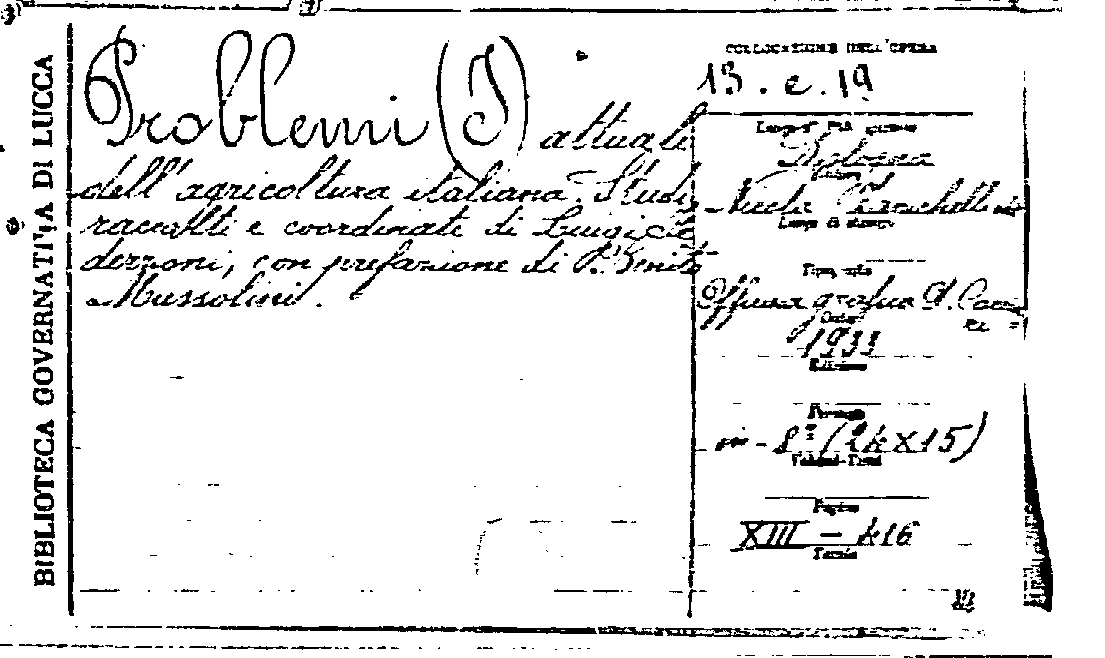 BIBLIOTECA GOVERNATIVA DI LUCCA
Problemi (I) attuali
dell'agricoltura italiana. Studi
raccolti e coordinati di Luigi
derzoni, con prefazione di B. Benito
Mussolini.
COLLOCAZIONE DELL'OPERA
13. c. 19
Bologna
Nicola Zanichelli
Luogo di stampa
Tipografia
Officina grafica A. Cacciari
Data
1933
Edizione
Formato
in-8° (24x15)
Pagine
XIII - 416